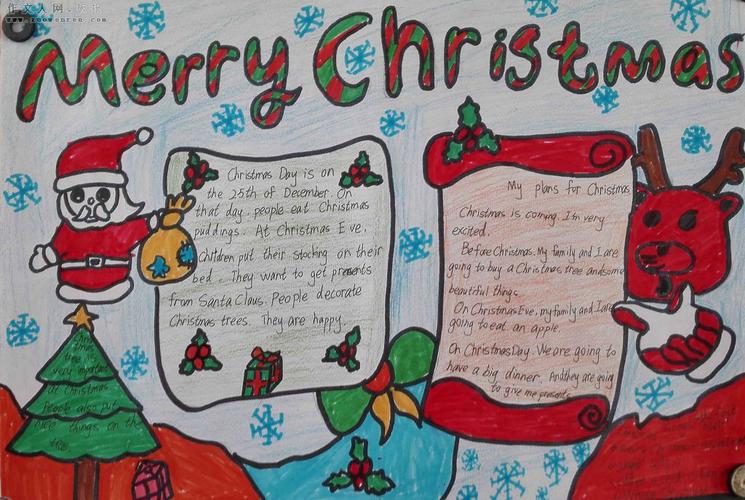 作文人网
www.zoowenren.com
Merry Christmas
Christmas Day is on
the 25th of December. On
that day. people eat Christmas
puddings. At Christmas Eve,
Children put their stocking on their
bed. They want to get presents
from Santa Claus. People decorate
Christmas trees. They are happy.
My plans for Christmas
Christmas is coming. I'm very
excited.
Before Christmas. My family and I are
going to buy a Christmas tree and some
beautiful things.
On Christmas Eve, my family and I are
going to eat an apple.
On Christmas Day. We are going to
have a big dinner. And they are going
to give me presents
Christmas
tree is
very important
at Christmas
People also put
nice things on the
tree.